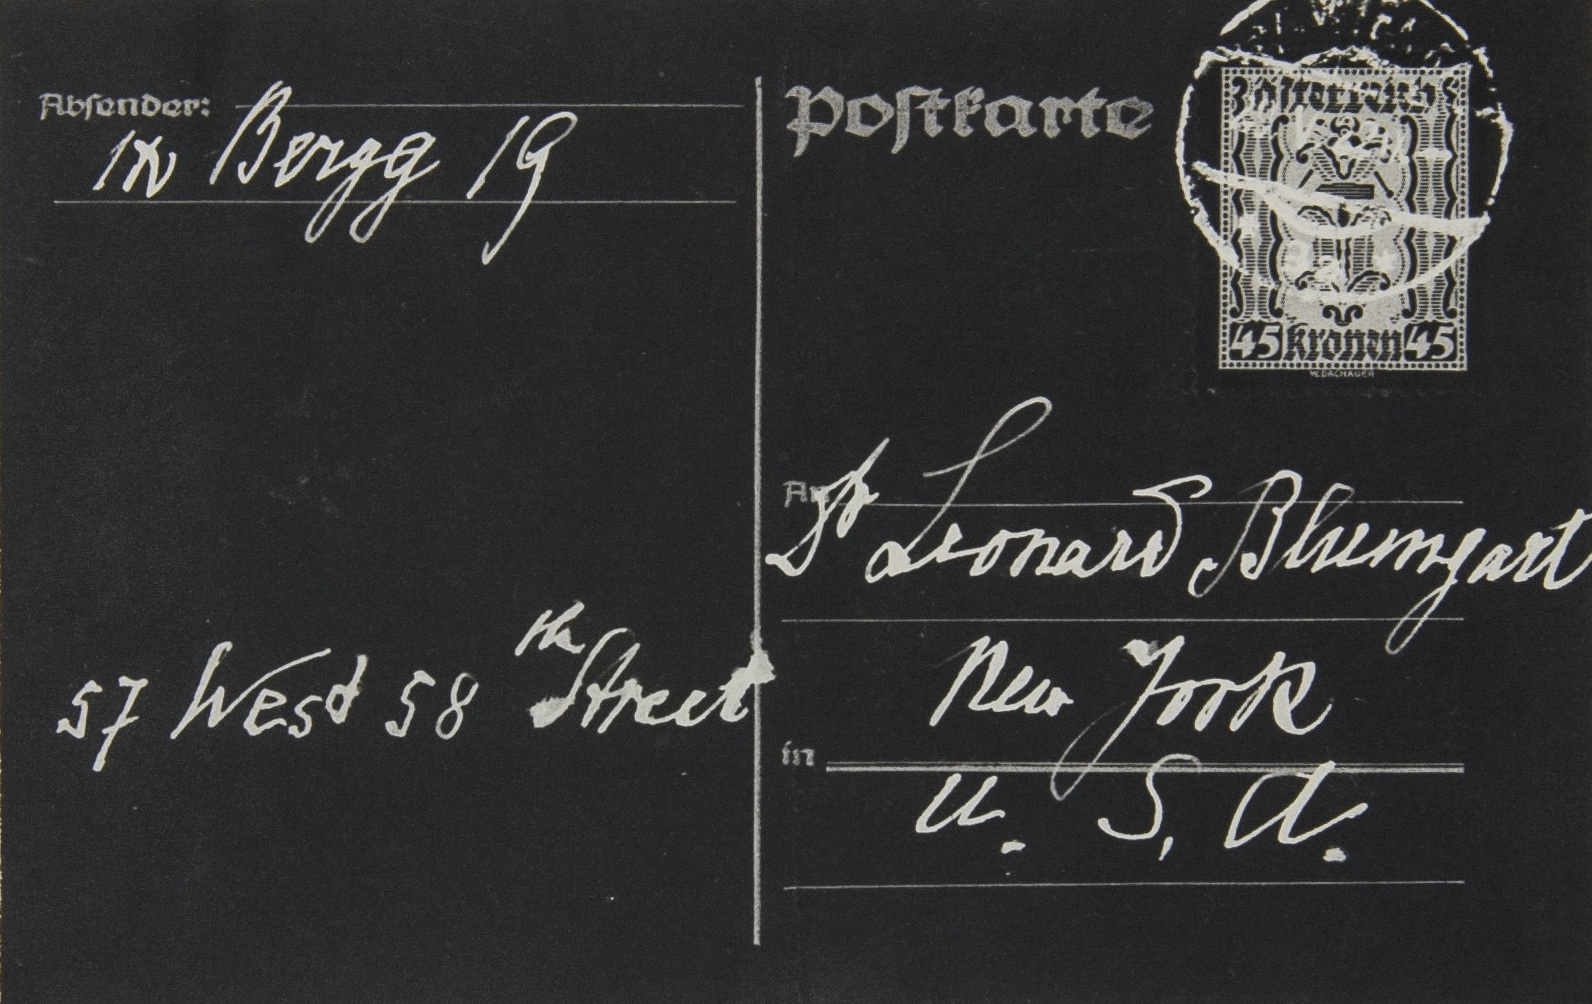 Absender:
IX Bergg 19
57 West 58th Street
Postkarte
WIEN
Österreich
45 Kronen 45
W. DACHAUER
An
Dr Leonard Blumgart
New York
in
U. S. A.